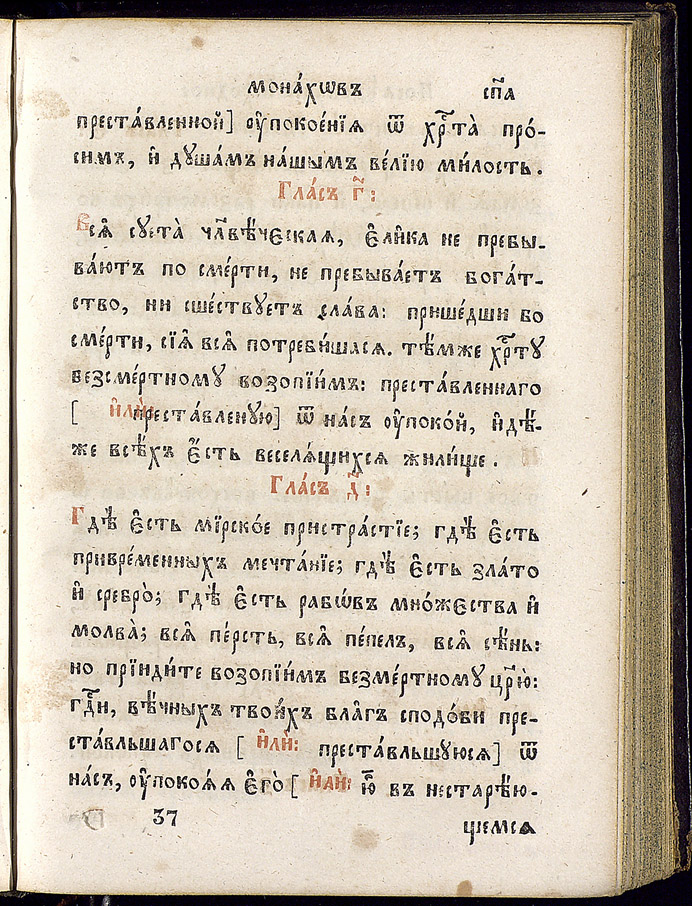 мона́хѡвъ сп҃а
преста́вленной] ᲂу҆покое́нїѧ ѿ хрⷭ҇та̀ про́-
симъ, и҆ душа́мъ на́шымъ ве́лїю ми́лость.
Гла́съ г҃:
Всѧ̑ сꙋета̀ чл҃вѣ́ческаѧ, є҆ли̑ка не пребы-
ва́ютъ по сме́рти, не пребыва́етъ бога́т-
ство, ни сше́ствꙋетъ сла́ва: прише́дши бо
сме́рти, сїѧ̑ всѧ̑ потреби́шасѧ. тѣ́мже хрⷭ҇тꙋ
безсме́ртномꙋ возопїи́мъ: преста́вленнаго
[ и҆лѝ: преста́вленꙋю] ѿ на́съ ᲂу҆поко́й, и҆дѣ́-
же всѣ́хъ є҆́сть веселѧ́щихсѧ жили́ще.
Гла́съ д҃:
Гдѣ̀ є҆́сть мїрско́е пристра́стїе; гдѣ̀ є҆́сть
привре́менныхъ мечта́нїе; гдѣ̀ є҆́сть зла́то
и҆ сребро̀; гдѣ̀ є҆́сть рабѡ́въ мно́жества и҆
молва̀; всѧ̑ пе́рсть, всѧ̑ пе́пелъ, всѧ̑ сѣ́нь:
но прїиди́те возопїи́мъ безме́ртномꙋ цр҃ю̀:
гдⷭ҇и, вѣ́чныхъ твои́хъ бл҃гъ сподо́би пре-
ста́вльшагосѧ [ и҆лѝ: преста́вльшꙋюсѧ] ѿ
на́съ, ᲂу҆поко́ѧѧ є҆го̀ [ и҆лѝ: ю҆̀ въ нестарѣ́ю-
37 щемсѧ